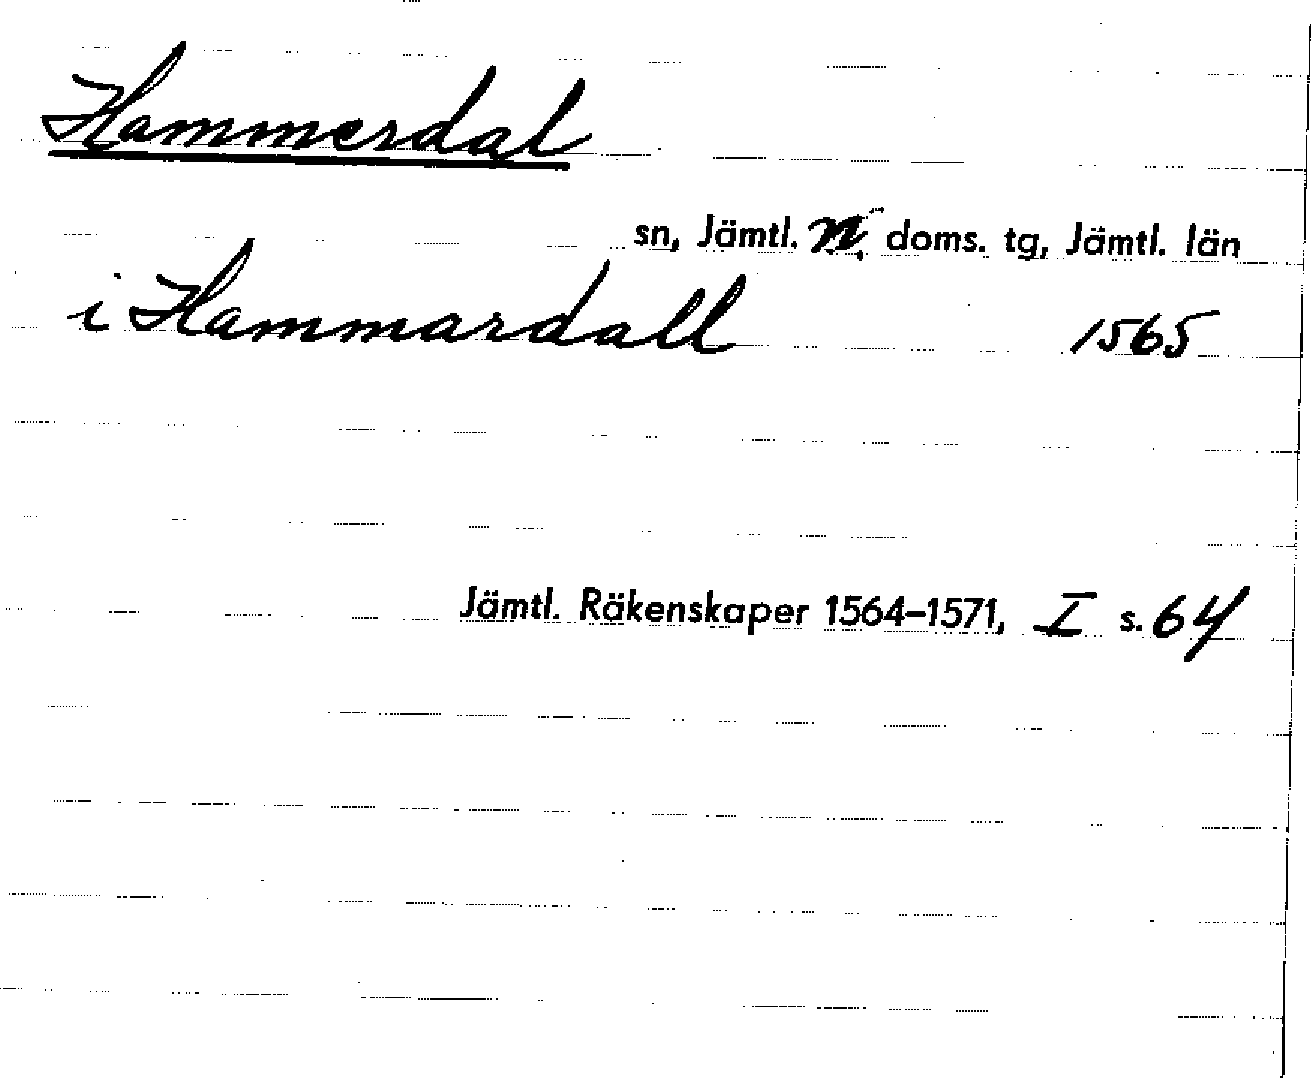 Hammerdal
sn, Jämtl. n. doms. tg, Jämtl. län
i Hammardall 1565
Jämtl. Räkenskaper 1564–1571, I s. 64